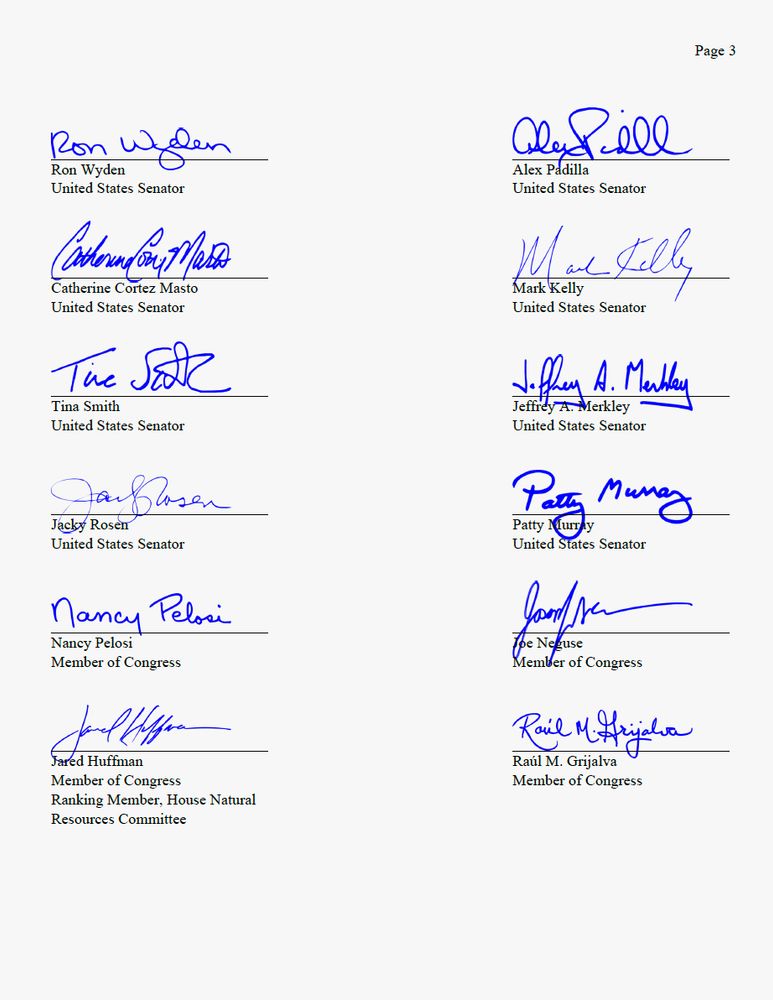 Page 3
Ron Wyden
Ron Wyden
United States Senator
Alex Padilla
Alex Padilla
United States Senator
Catherine Cortez Masto
Catherine Cortez Masto
United States Senator
Mark Kelly
Mark Kelly
United States Senator
Tina Smith
Tina Smith
United States Senator
Jeffrey A. Merkley
Jeffrey A. Merkley
United States Senator
Jacky Rosen
Jacky Rosen
United States Senator
Patty Murray
Patty Murray
United States Senator
Nancy Pelosi
Nancy Pelosi
Member of Congress
Joe Neguse
Member of Congress
Jared Huffman
Jared Huffman
Member of Congress
Ranking Member, House Natural
Resources Committee
Raúl M. Grijalva
Raúl M. Grijalva
Member of Congress